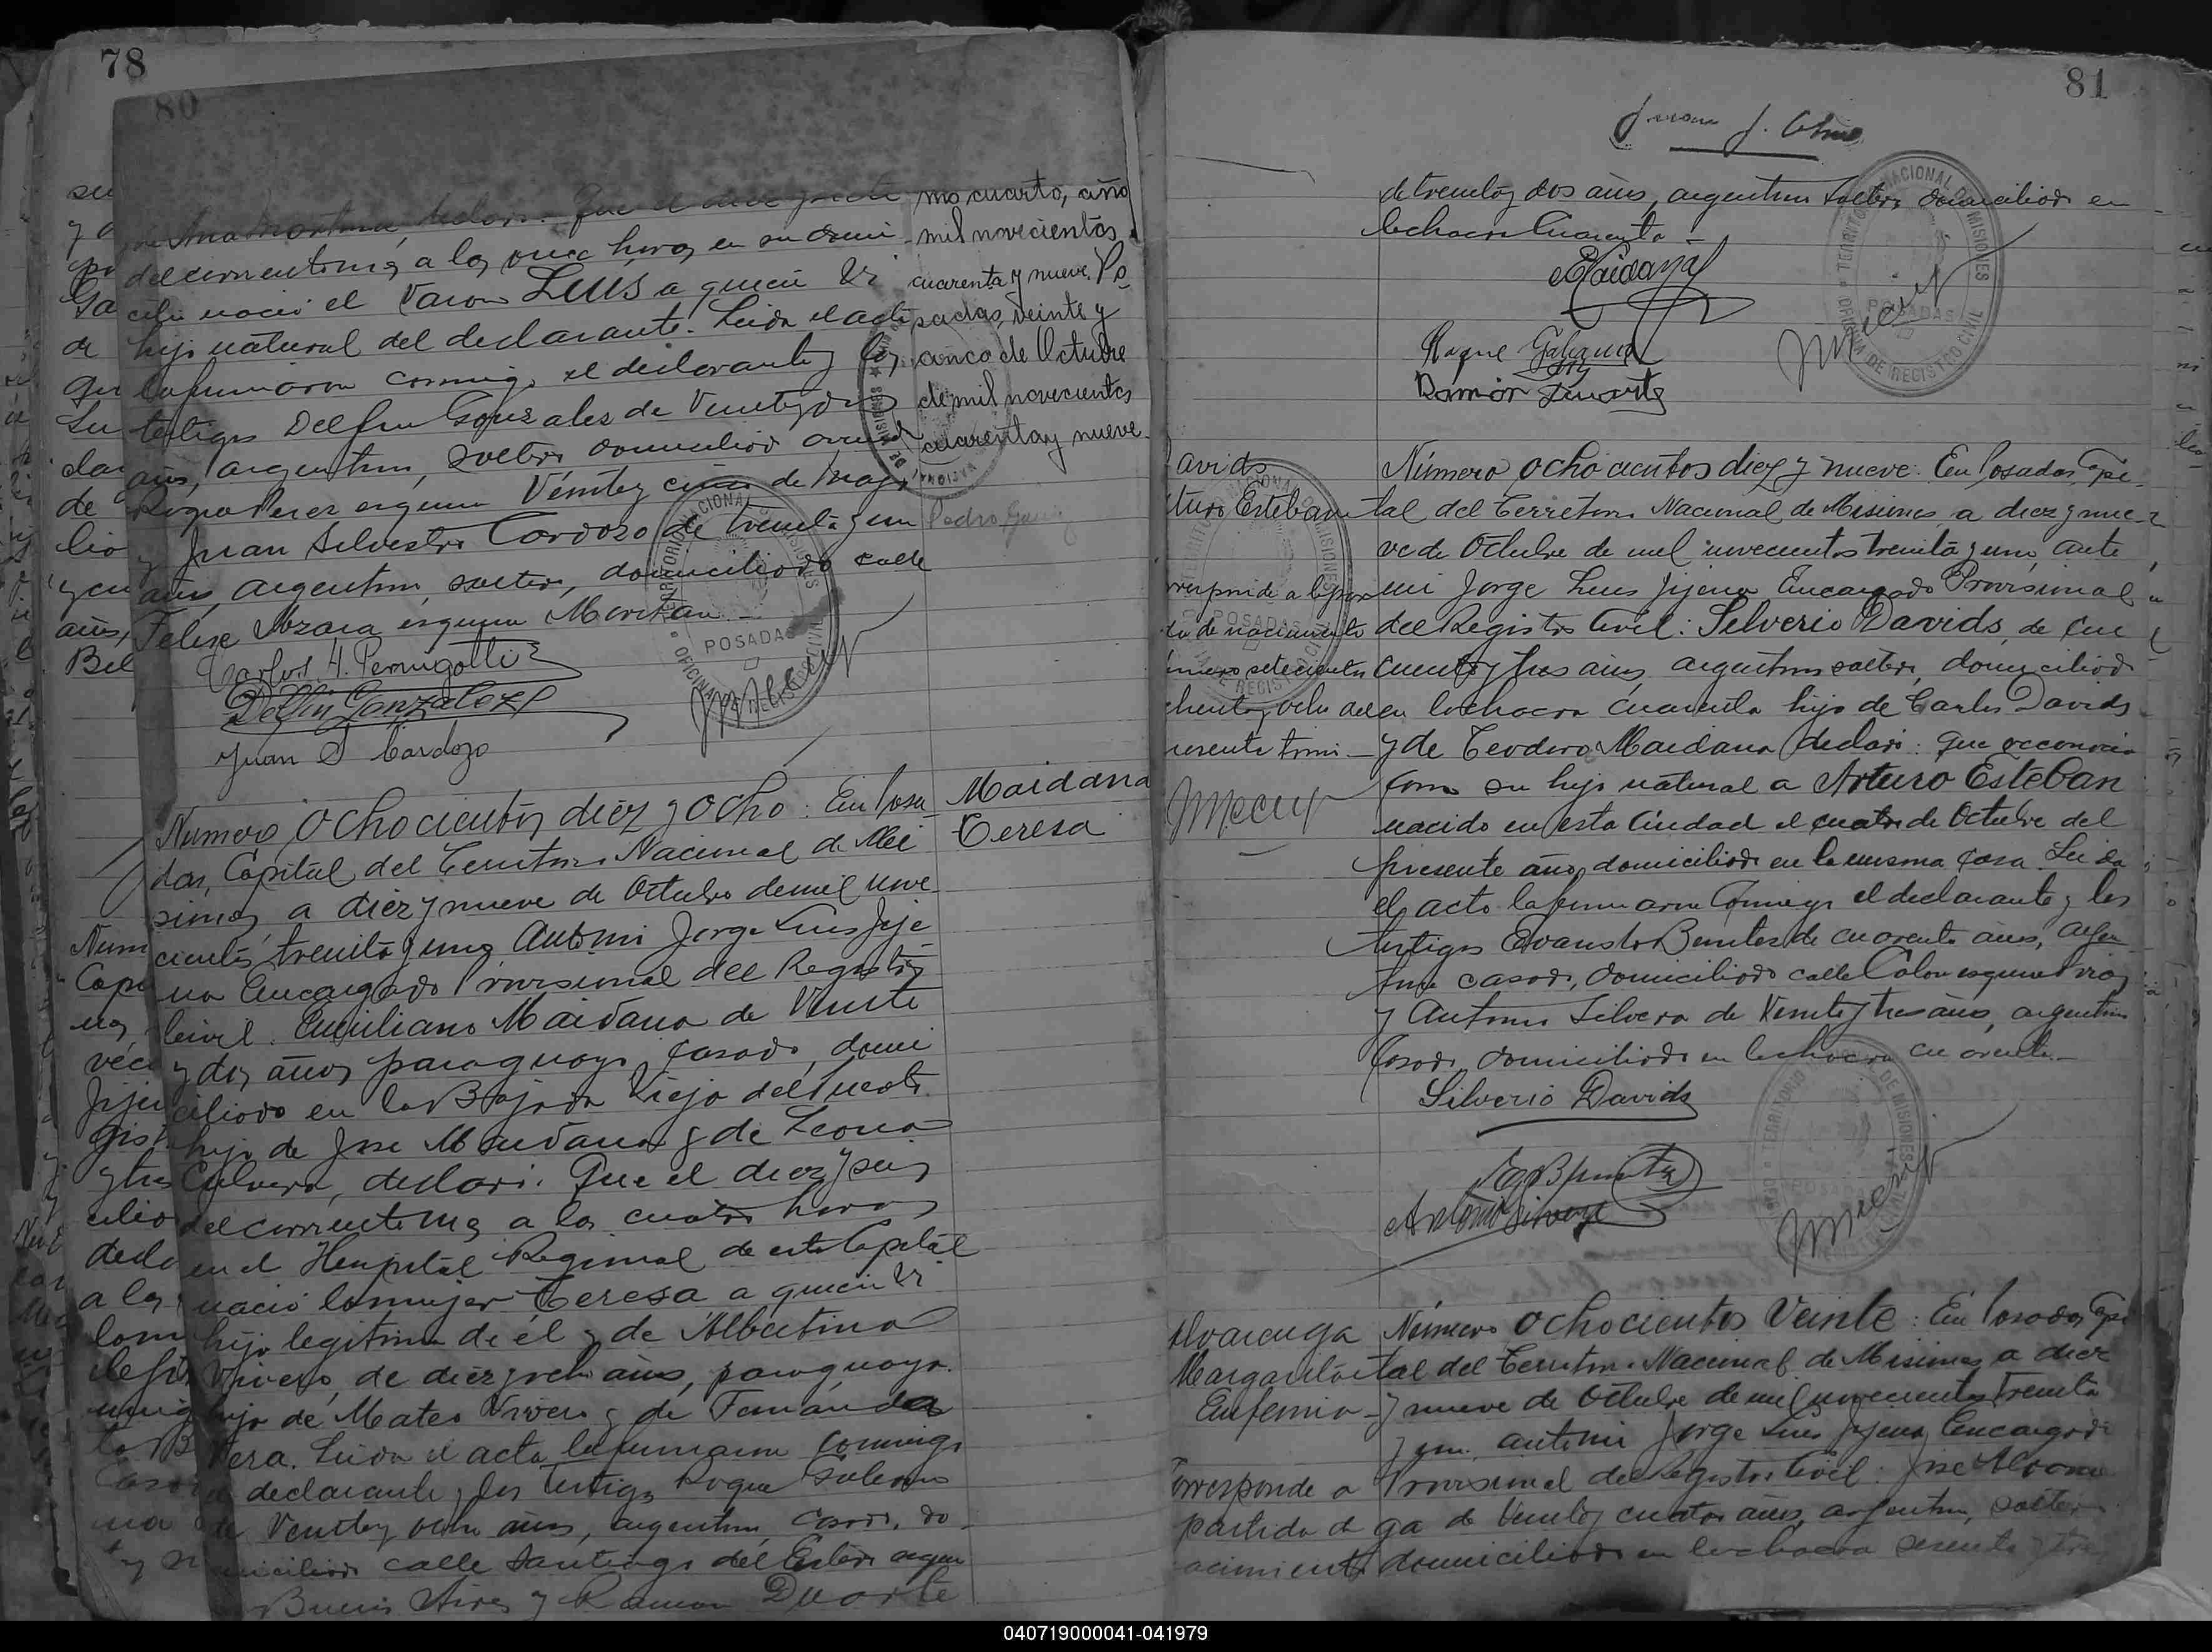 78
80
declaró: Que el diez y siete
del corriente mes, a las once horas en su domi
cilio nació el varon LUIS a quien vi
hijo natural del declarante. Leida el acta
la firmaron conmigo el declarante y los
testigos Delfin Gonzales de Veinty dos
años, argentino, soltero domiciliado avenida
Roque Perez esquina Veintey cinco de Mayo
y Juan Silvestre Cardozo de treinta y un
años, argentino, soltero, domiciliado calle
Felix Azara esquina
Carlos H. Perugotti
Delfin Gonzalez
Juan S Cardozo
mo cuarto, año
mil novecientos
cuarenta y nueve. Po
sadas, veinte y
cinco de Octubre
de mil novecientos
cuarenta y nueve.
TERRITORIO NACIONAL DE MISIONES
POSADAS
OFICINA DE REGISTRO CIVIL
Maidana
Teresa
Número Ochocientos diez y ocho: En Posa
das, Capital del Territorio Nacional de Mi
siones, a diez y nueve de Octubre de mil nove
cientos treinta y uno, Ante mi Jorge Luis Jije
na Encargado Provisional del Registro
Civil. Emiliano Maidana de Veinte
y dos años paraguayo, casado, domi
ciliado en la Bajada Vieja del Puerto
hijo de Jose Maidana y de Leona
declaró: Que el diez y seis
del corriente mes a las cuatro horas
en el Hospital Regional de esta Capital
nació la mujer Teresa a quien vi
hija legitima de él y de Albertina
Rivero, de diez y ocho años, paraguaya.
hija de Mateo Rivero y de Fernanda
Vera. Leida el acta la firmaron conmigo
el declarante y los testigos Roque Galeano
de Veintey ocho años, argentino, casado, do
miciliado calle Santiago del Estero esquina
Buenos Aires y Ramon Duarte
81
de treinta y dos años, argentino soltero domiciliado en
la chacra Cuarenta
EMaidana
Roque Galeano
Ramón Duarte
TERRITORIO NACIONAL DE MISIONES
POSADAS
OFICINA DE REGISTRO CIVIL
avids
turo Esteban
rresponde a la par
da de nacimiento
úmero setecientos
chenta y ocho del
presente tomo
Número ochocientos diez y nueve: En Posadas, Capi
tal del Territorio Nacional de Misiones a diez y nue
ve de Octubre de mil novecientos treinta y uno, ante
mi Jorge Luis Jijena Encargado Provisional
del Registro Civil: Silverio Davids, de cin
cuenta y tres años, argentino soltero, domiciliado
en la chacra cuarenta hijo de Carlos Davids
y de Teodora Maidana declaró: Que reconocia
como su hijo natural a Arturo Esteban
nacido en esta Ciudad el cuatro de Octubre del
presente año, domiciliado en la misma casa. Leida
el acta la firmaron conmigo el declarante y los
testigos Evaristo Benitez de cuarenta años, argen
tino casado, domiciliado calle Colon esquina
y Antonio Silvera de Veinte y tres años, argentino
casado, domiciliado en la chacra cuarenta.
Silverio Davids
Antonio Silvera
TERRITORIO NACIONAL DE MISIONES
lvarenga
Margarita
Eufemia
orresponde a
partida de
acimiento
Número Ochocientos Veinte: En Posadas, Capi
tal del Territorio Nacional de Misiones, a diez
y nueve de Octubre de mil novecientos treinta
y uno. ante mi Jorge Luis Jijena, Encargado
Provisional del Registro Civil: Jose Alvaren
ga de Veinte y cuatro años, argentino, soltero
domiciliado en la chacra sesenta y tres
040719000041-041979